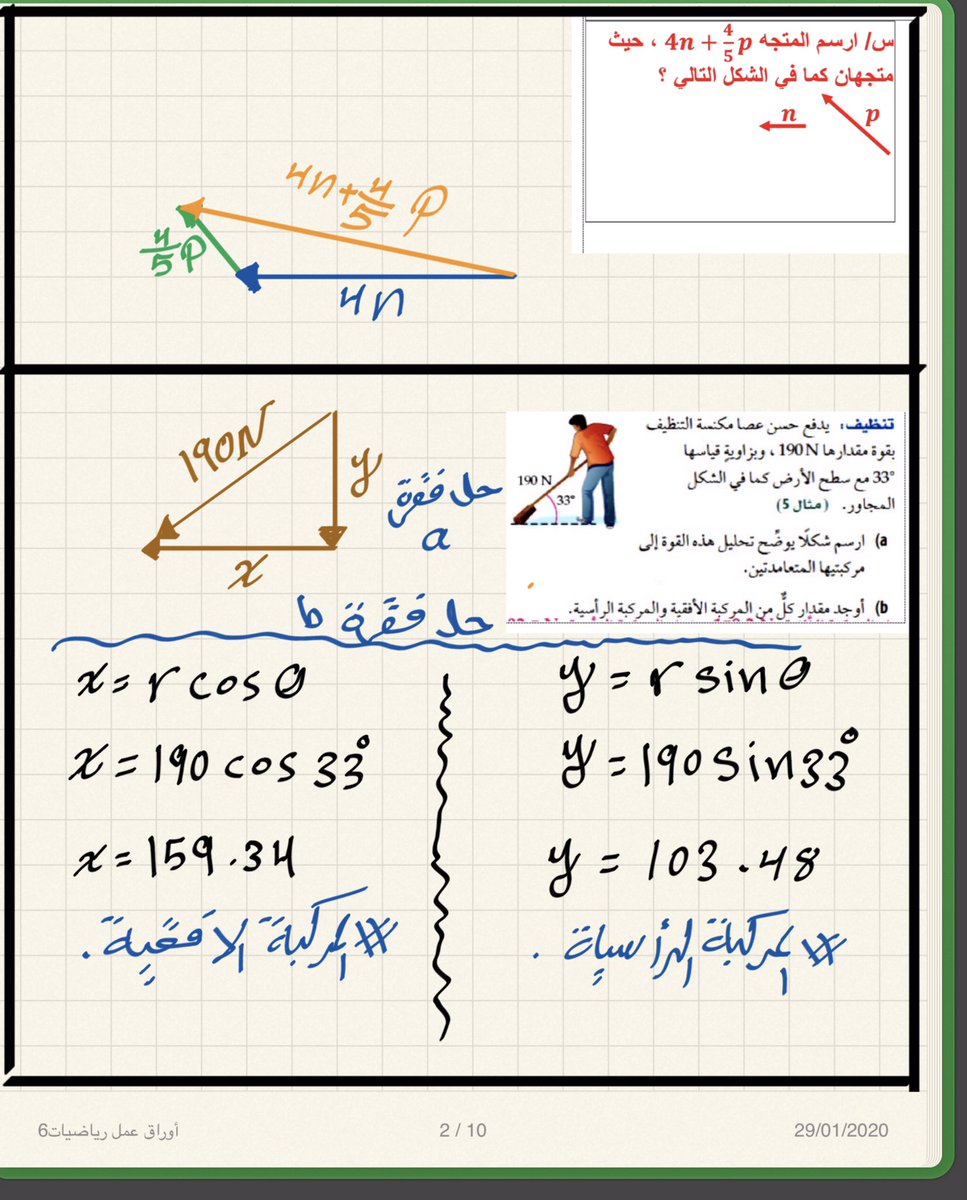 س/ ارسم المتجه 4n + 4/5 p ، حيث
متجهان كما في الشكل التالي ؟
n
p
4n+4/5 p
4/5 p
4n
تنظيف: يدفع حسن عصا مكنسة التنظيف
بقوة مقدارها 190 N ، وبزاوية قياسها
33° مع سطح الأرض كما في الشكل
المجاور. (مثال 5)
a) ارسم شكلًا يوضِّح تحليل هذه القوة إلى
مركبتيها المتعامدتين.
b) أوجد مقدار كلٍّ من المركبة الأفقية والمركبة الرأسية.
190 N
33°
190N
y
x
حل فقرة
a
حل فقرة b
x = r cos θ
x = 190 cos 33°
x = 159.34
# المركبة الافقية .
y = r sin θ
y = 190 sin 33°
y = 103.48
# المركبة الرأسية .
أوراق عمل رياضيات6
2 / 10
29/01/2020